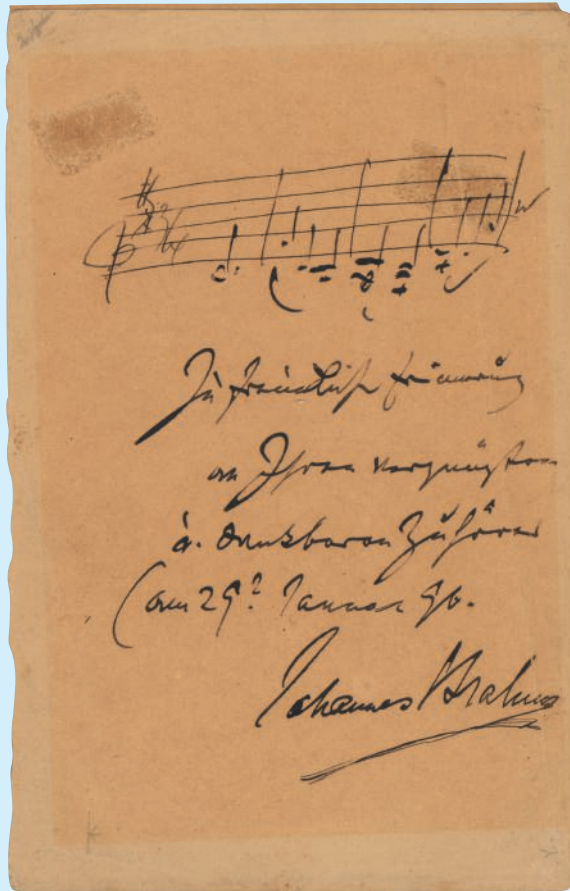 Zu freundlicher Erinnerung
an Ihren vergnügten
u. dankbaren Zuhörer
(am 29t Januar 96.
Johannes Brahms